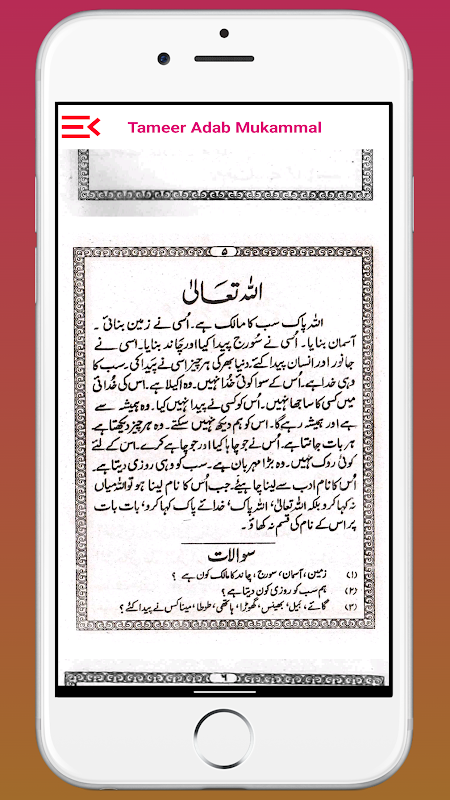 Tameer Adab Mukammal
۵
اللہ تعالیٰ
اللہ پاک سب کا مالک ہے۔ اُسی نے زمین بنائی ۔
آسمان بنایا۔ اُسی نے سُورج پیدا کیا اور چاند بنایا۔ اسی نے
جانور اور انسان پیدا کئے، دنیا بھر کی ہر چیز اسی نے پیدا کی۔ سب کا
وہی خدا ہے۔ اُس کے سوا کوئی خُدا نہیں۔ وہ اکیلا ہے۔ اس کی خُدائی
میں کسی کا ساجھا نہیں۔ اُس کو کسی نے پیدا نہیں کیا۔ وہ ہمیشہ سے
ہے اور ہمیشہ رہے گا۔ اس کو ہم دیکھ نہیں سکتے۔ وہ ہر چیز دیکھتا ہے
ہر بات جانتا ہے۔ اُس نے جو چاہا کیا اور جو چاہے کرے۔ اس کے لئے
کوئی روک نہیں۔ وہ بڑا مہربان ہے۔ سب کو وہی روزی دیتا ہے۔
اُس کا نام ادب سے لینا چاہیئے۔ جب اُس کا نام لینا ہو تو اللہ میاں
نہ کہا کرو بلکہ اللہ تعالیٰ، اللہ پاک، خدائے پاک کہا کرو، بات بات
پر اس کے نام کی قسم نہ کھاؤ ۔
سوالات
(۱) زمین، آسمان، سورج، چاند کا مالک کون ہے ؟
(۲) ہم سب کو روزی کون دیتا ہے؟
(۳) گائے، بیل، بھینس، گھوڑا، ہاتھی، طوطا، مینا کس نے پیدا کئے؟
۶